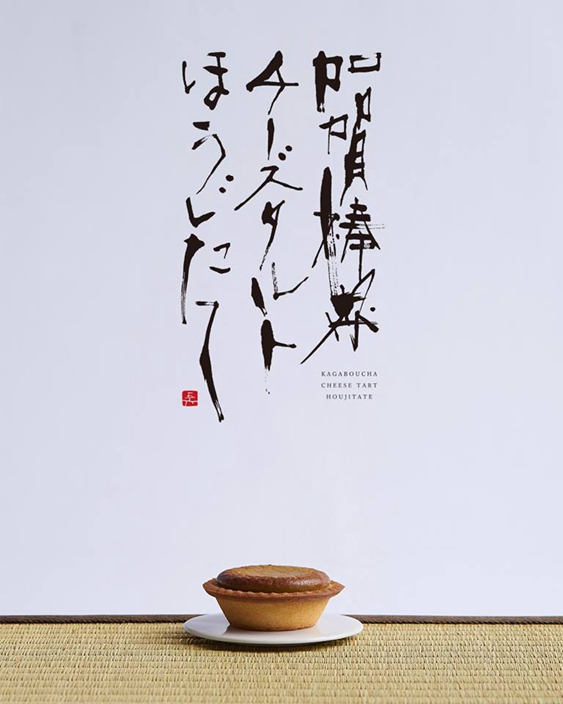 加賀棒茶
チーズタルト
ほうじたて
KAGABOUCHA
CHEESE TART
HOUJITATE